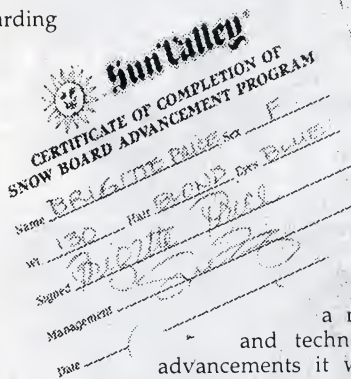 arding
Sun Valley
CERTIFICATE OF COMPLETION OF
SNOW BOARD ADVANCEMENT PROGRAM
Name BRIGITTE Sex F
Wt. 130 Hair BLOND Eyes BLUE
Signed Brigitte
Management
Date
a
and techn
advancements it w